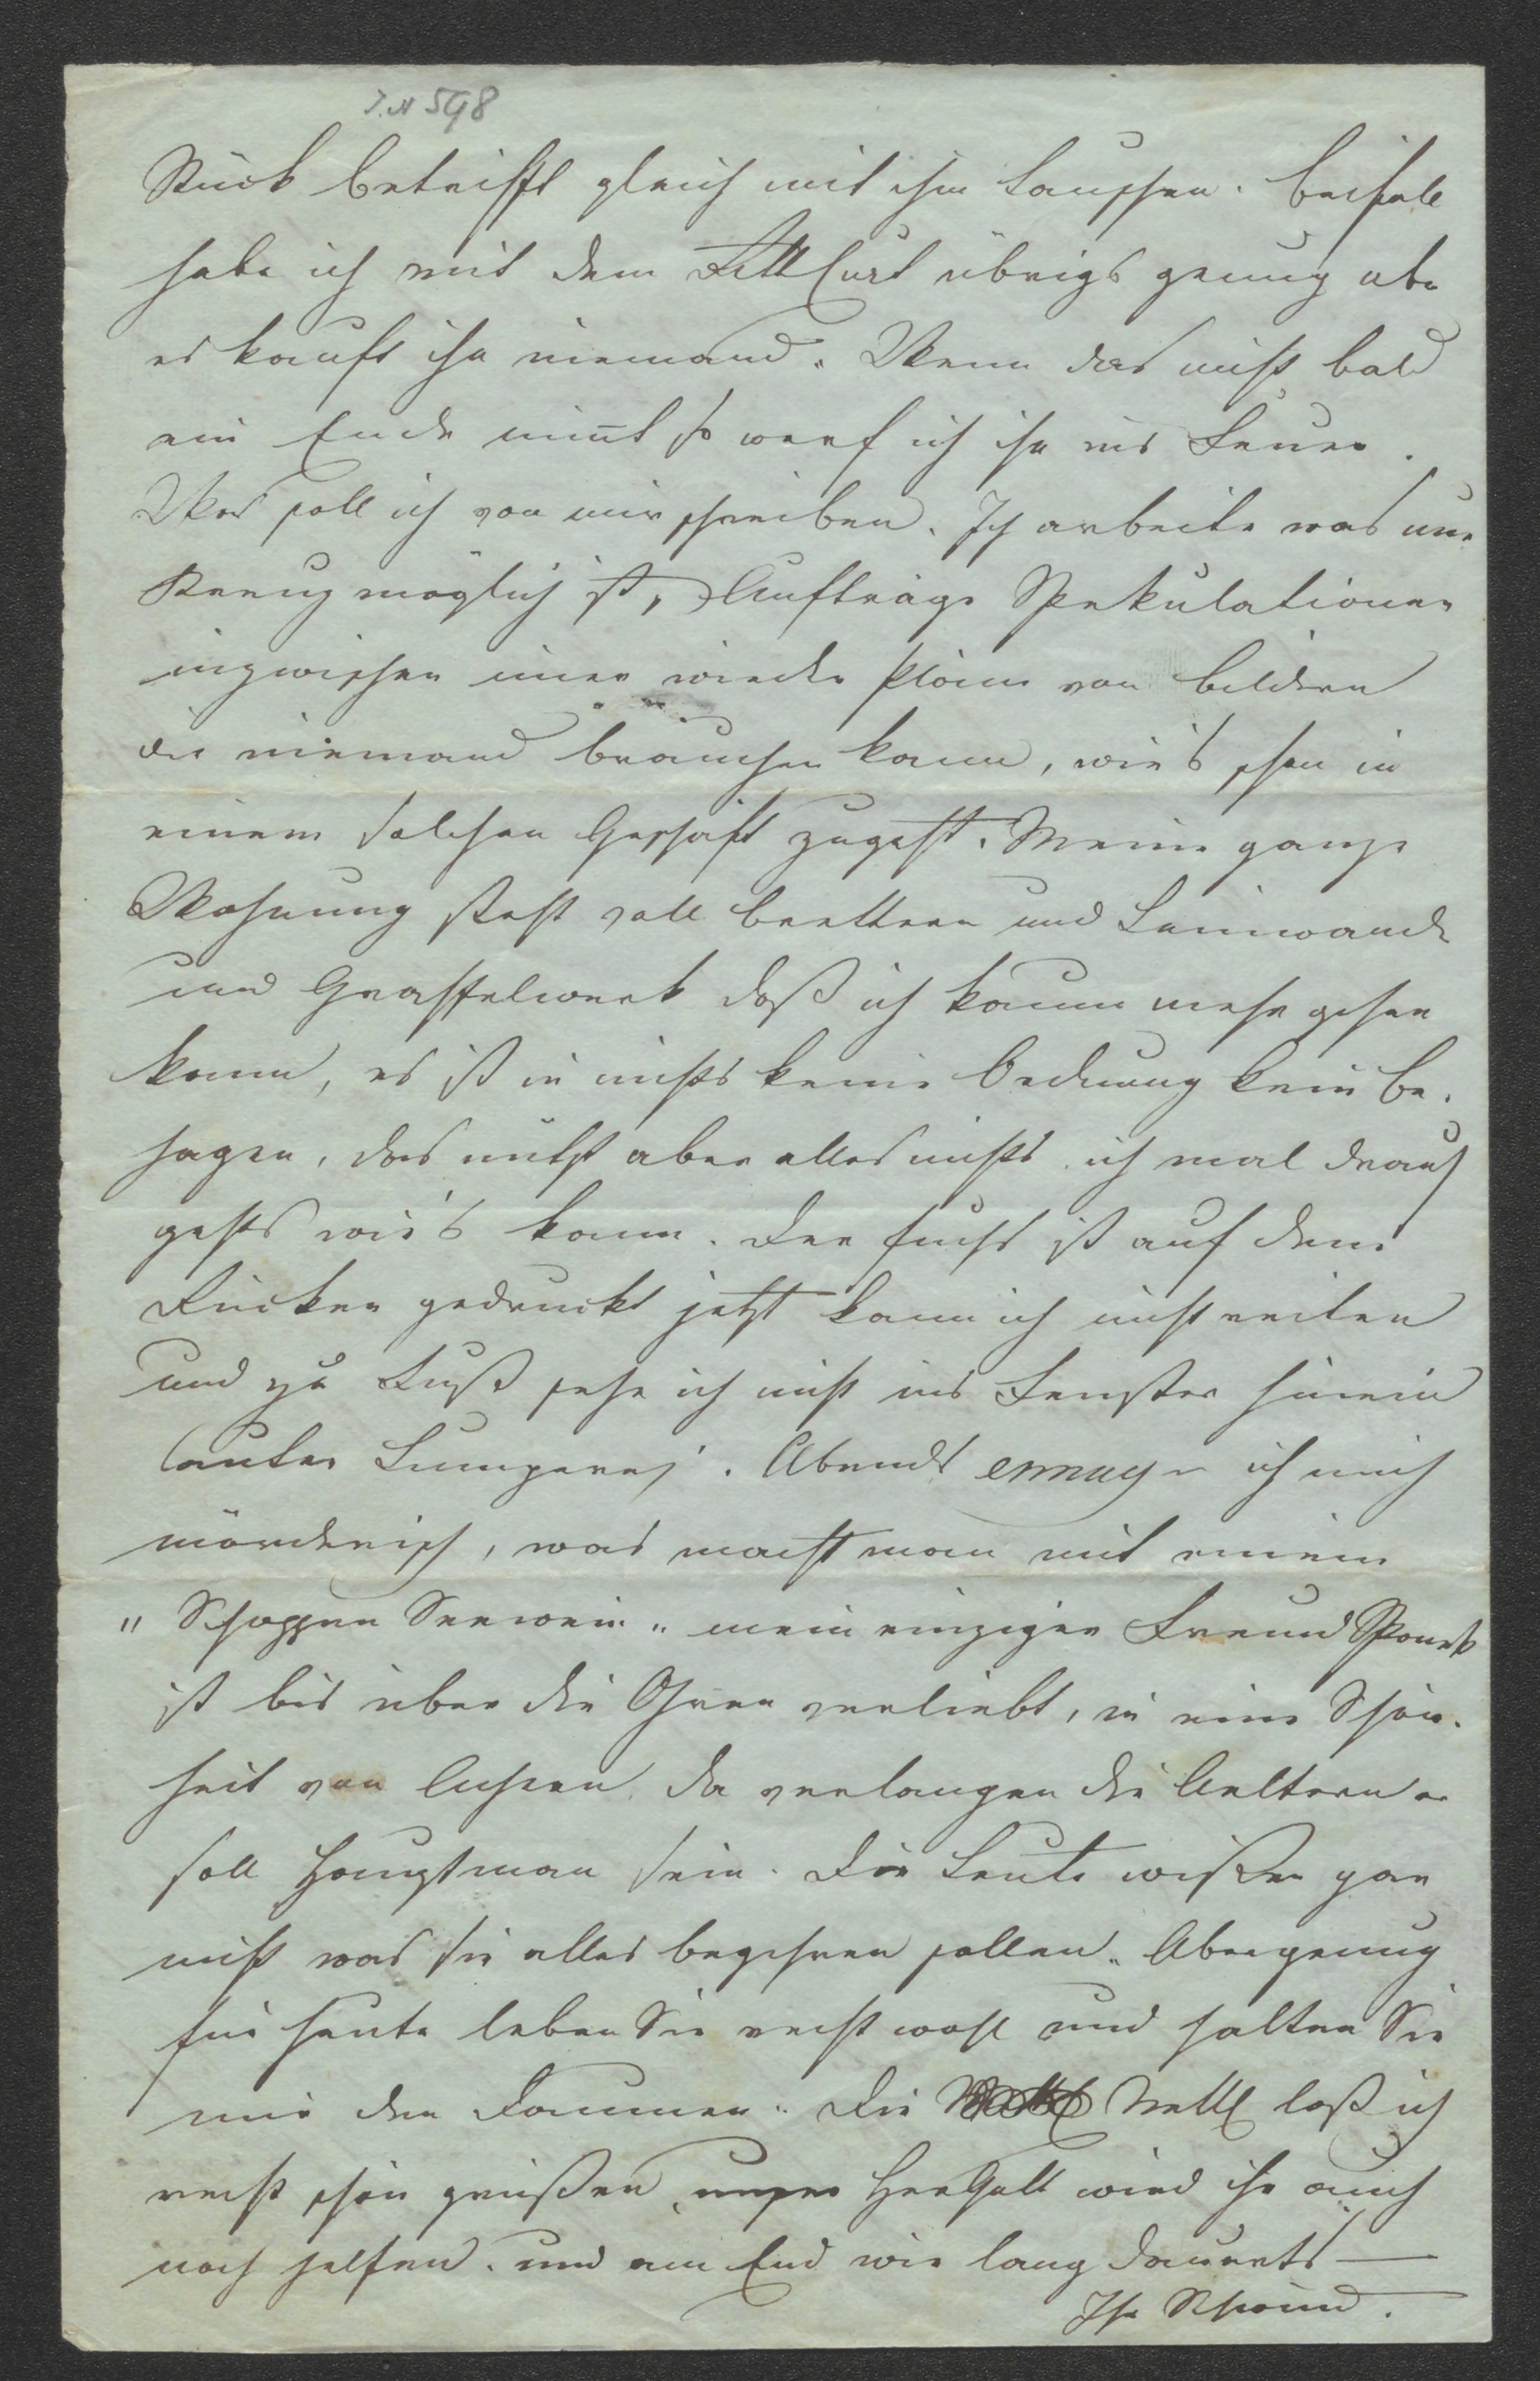 J. N 598
Stück betrifft gleich mit ihm tauschen. Beifall
habe ich mit dem übrigs genug aber
es kauft ihn niemand. Wenn das nicht bald
ein Ende nim̄t so werf ich ihn ins Feuer.
Was soll ich von mir schreiben. Ich arbeite was nur
streng möglich ist, Aufträge Spekulationen
inzwischen im̄er wieder Pläne von Bildern
die niemand brauchen kann, wie's schon in
einem solchen Geschäft zugeht. Meine ganze
Wohnung steht voll Brettern und Leinwande
und Graffelwerk daß ich kaum mehr gehen
kann, es ist in nichts keine Ordnung kein Be-
hagen, das nützt aber alles nichts. ich mal drauf
gehts wie's kann. Der Fuchs ist auf dem
Rücken gedruckt jetzt kann ich nicht reiten
und zu Fuß sehe ich nicht ins Fenster hinein
lauter Lumperej. Abends ennuye ich mich
mörderisch, was macht man mit einem
"Schoppen Seewein" mein einziger Freund
ist bis über die Ohren verliebt, in eine Schön-
heit von Aussen da verlangen die Aeltern er
soll Hauptman sein. Die Leute wißen gar
nicht was sie alles begehren sollen. Aber genug
für heute leben Sie recht wohl und halten Sie
mir den Daumen. Die Nettl laß ich
recht schön grüßen, unser HerrGott wird ihr auch
noch helfen. und am End wie lang dauerts —
Ihr Schwind.